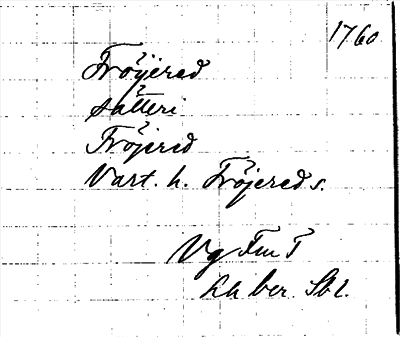 1760
Fröjered
säteri
Fröjered
Vart. h. Fröjereds.
Vg Fm T
Lh ber. Sbl.